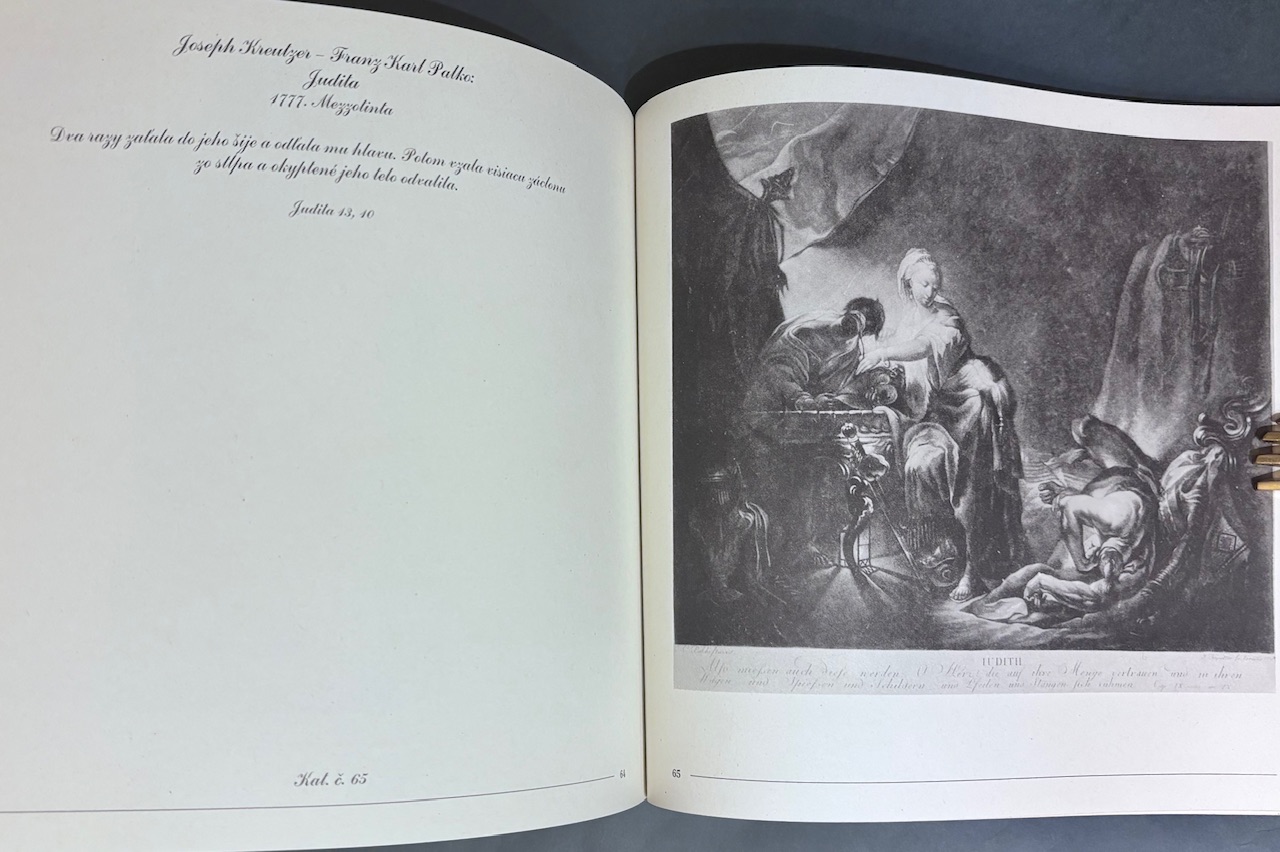 Joseph Kreutzer – Franz Karl Palko:
Judita
1777. Mezzotinta
Dva razy zaťala do jeho šije a odťala mu hlavu. Potom vzala visiacu záclonu
zo stĺpa a okyptené jeho telo odvalila.
Judita 13, 10
Kat. č. 65
64
IUDITH
müssen auch diese werden, O Herr, die auf ihre Menge vertrauen und in ihren
Wägen und Spiessen und Schildern und Pfeilen und Stangen sich rühmen.
65